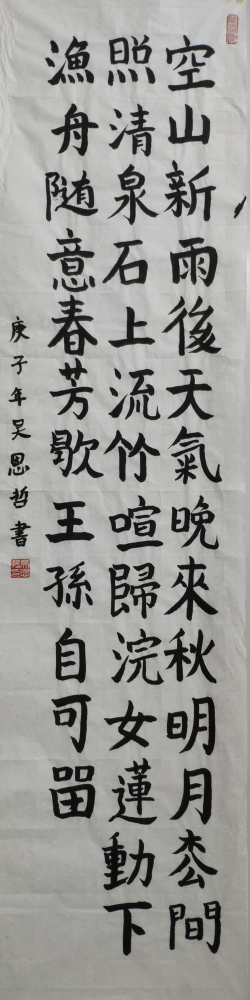 空山新雨後天氣晚來秋明月枀間
照清泉石上流竹喧歸浣女蓮動下
漁舟随意春芳歇王孫自可留
庚子年吴恩哲書